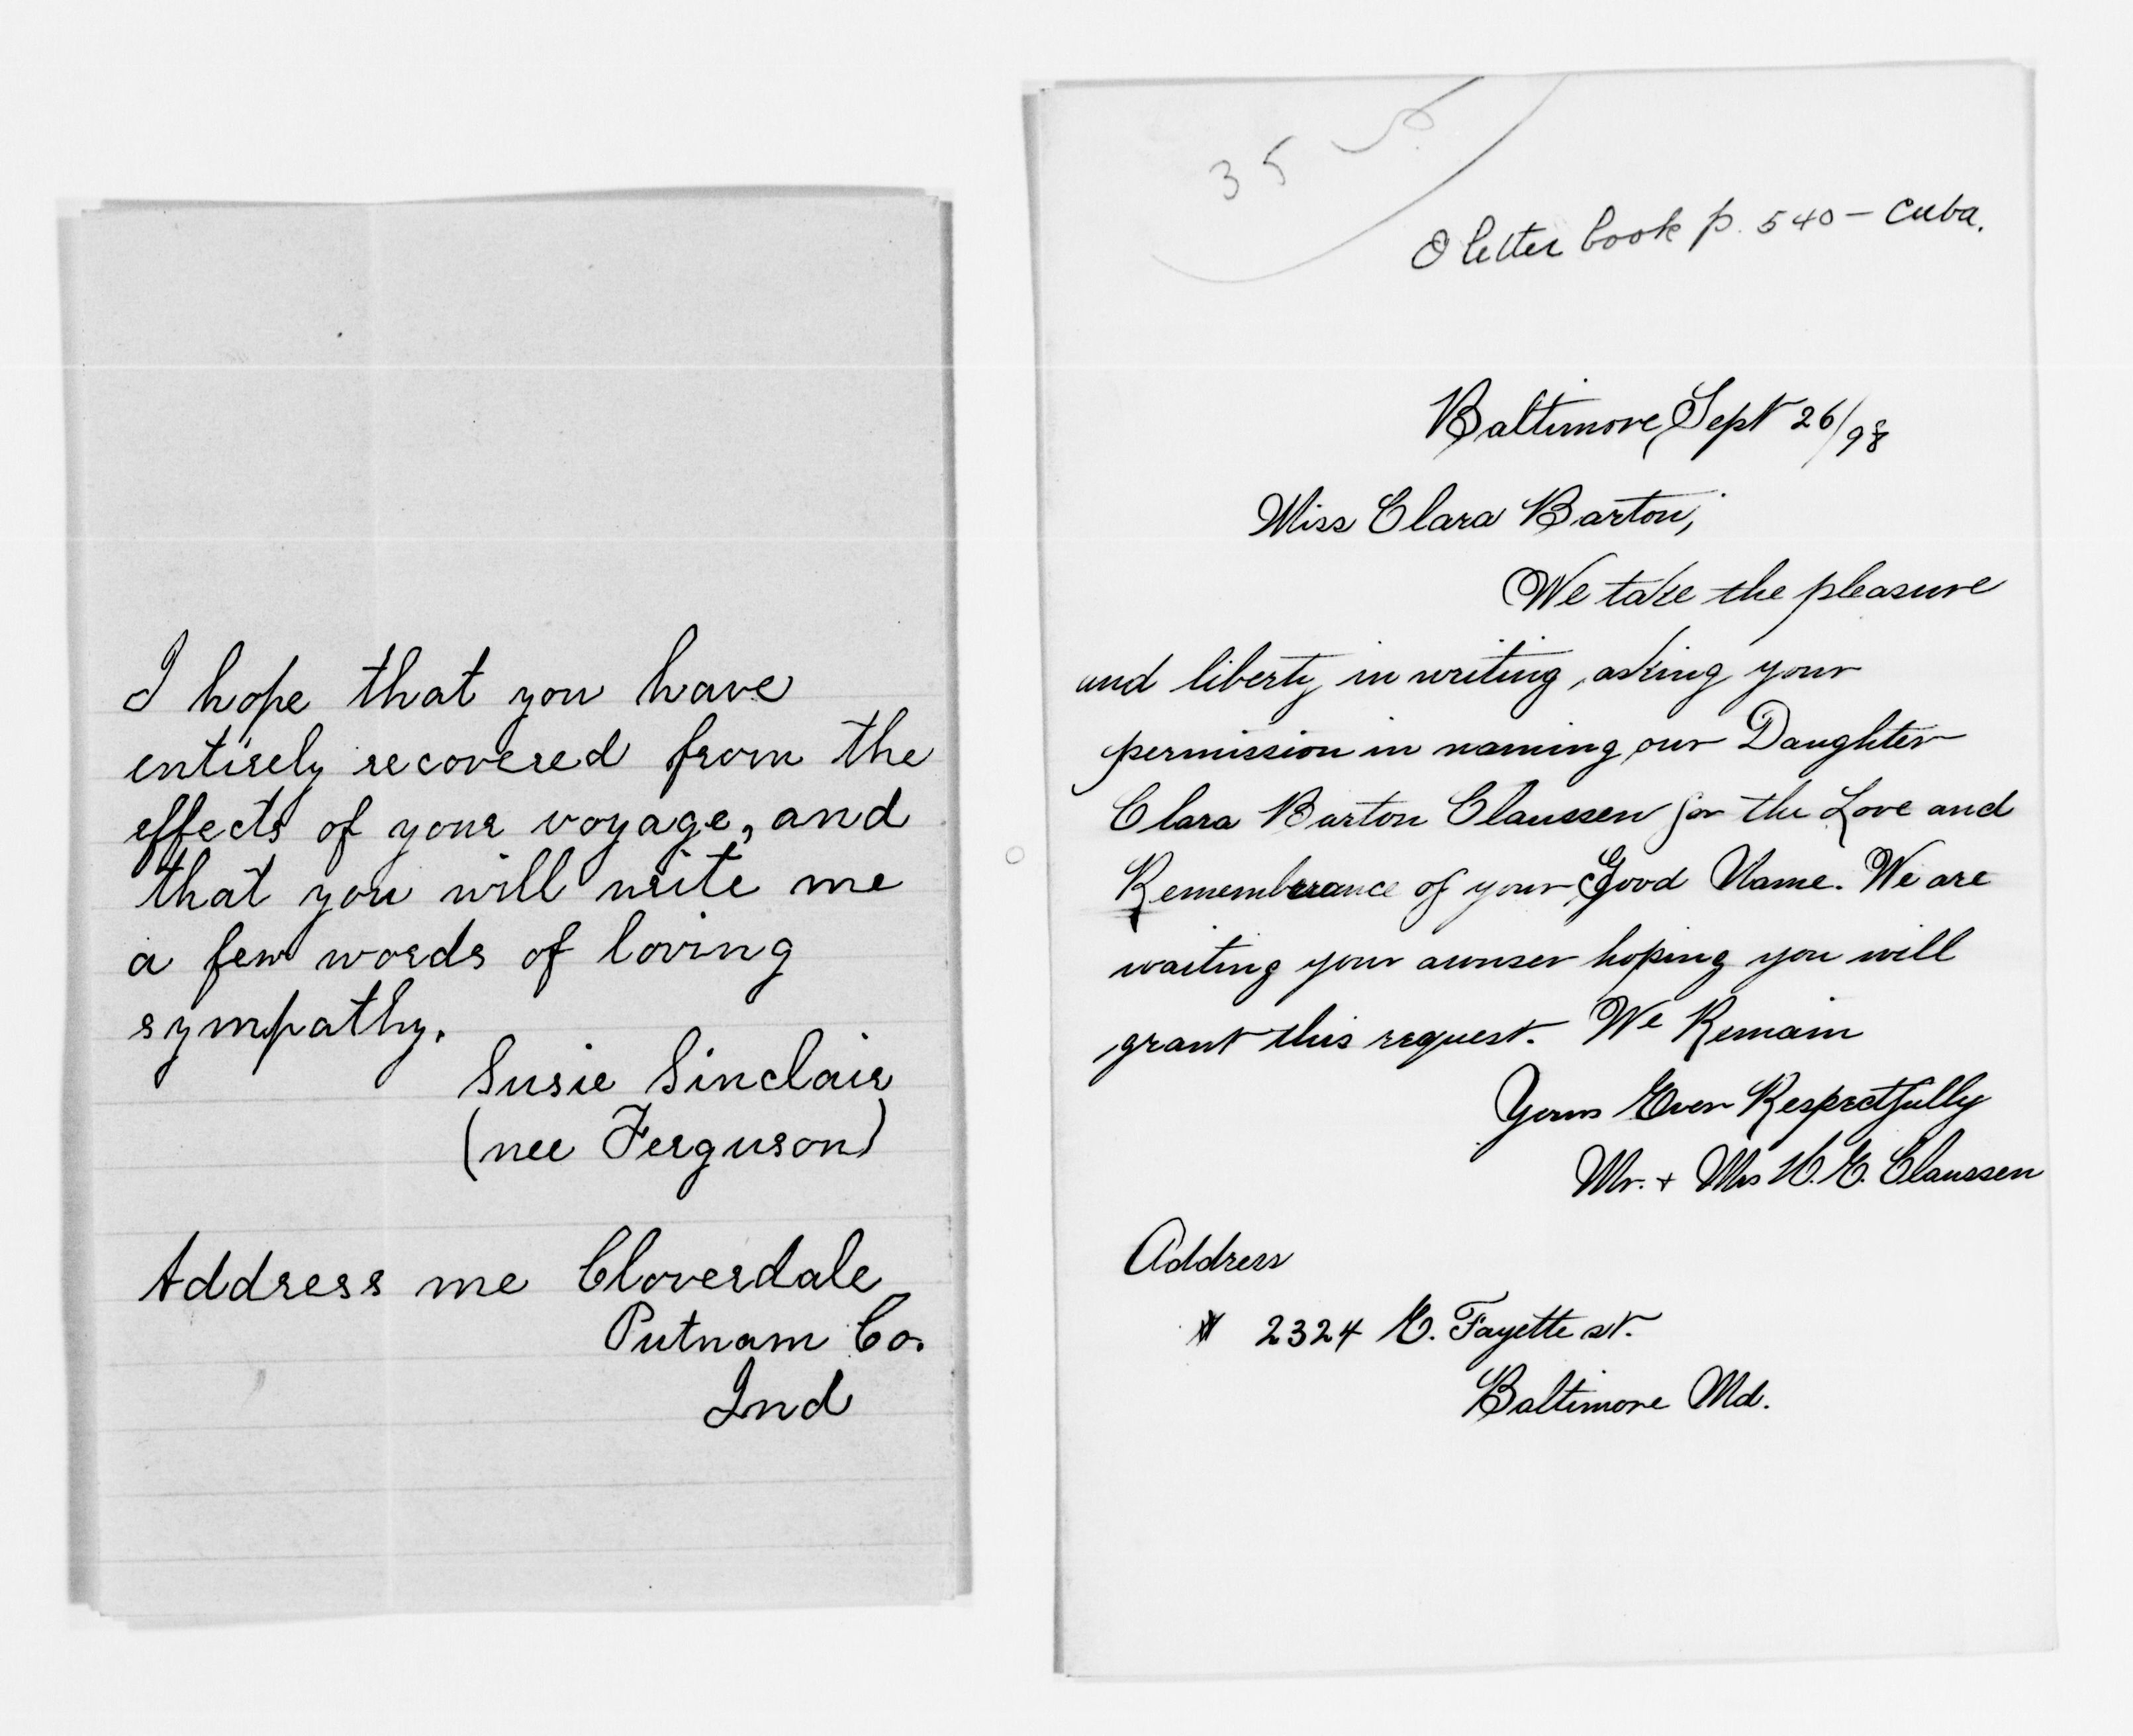 I hope that you have
entirely recovered from the
effects of your voyage, and
that you will write me
a few words of loving
sympathy.
Susie Sinclair
(nee Ferguson)
Address me Cloverdale
Putnam Co.
Ind
35
letter book p. 540 - Cuba.
Baltimore, Sept 26/98
Miss Clara Barton,
We take the pleasure
and liberty in writing, asking your
permission in naming our Daughter
Clara Barton Claussen for the Love and
Rememberance of your Good Name. We are
waiting your awnser hoping you will
grant this request. We Remain
Yours Ever Respectfully
Mr. + Mrs H. E. Claussen
Address
2324 E. Fayette st.
Baltimore Md.